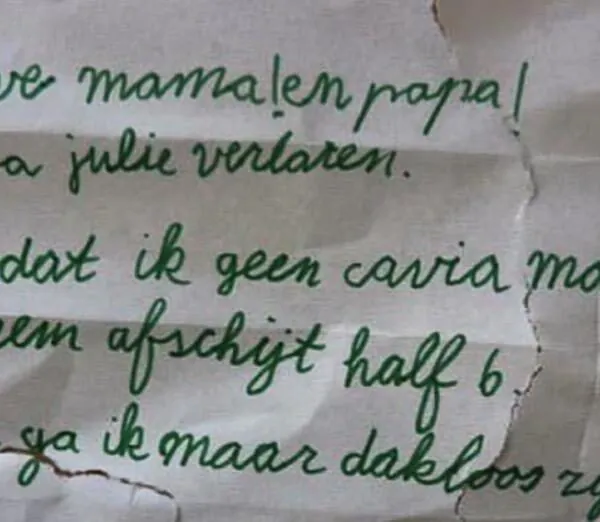 ve mama!en papa!
a julie verlaten.
dat ik geen cavia mo
eem afschijt half 6
ga ik maar dakloos zy